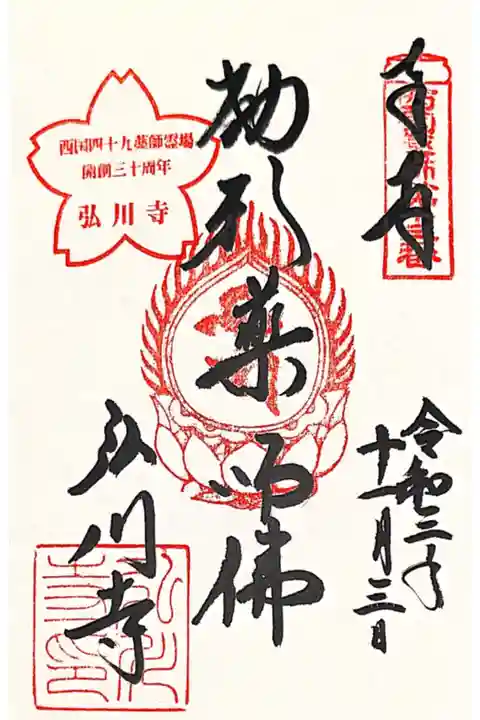 奉拝
西国四十九薬師霊場
開創三十周年
弘川寺
薬師佛
弘川寺
令和三年
十一月三日